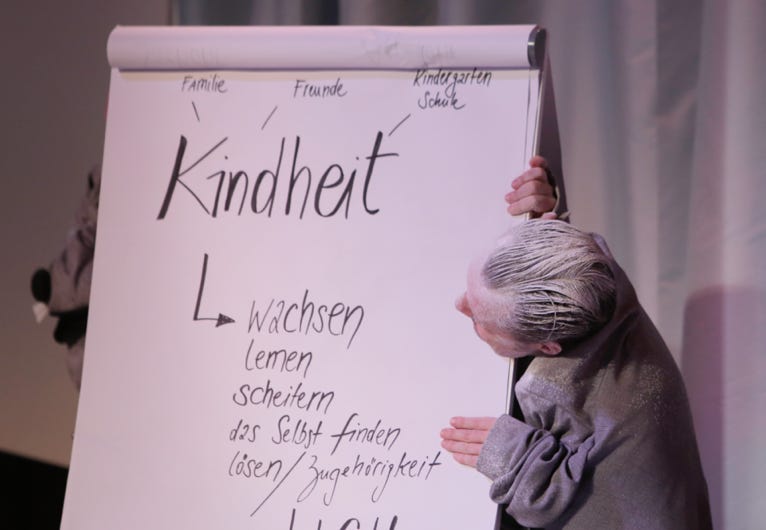 Familie Freunde Kindergarten
Schule
Kindheit
Wachsen
lernen
scheitern
das Selbst finden
lösen/Zugehörigkeit